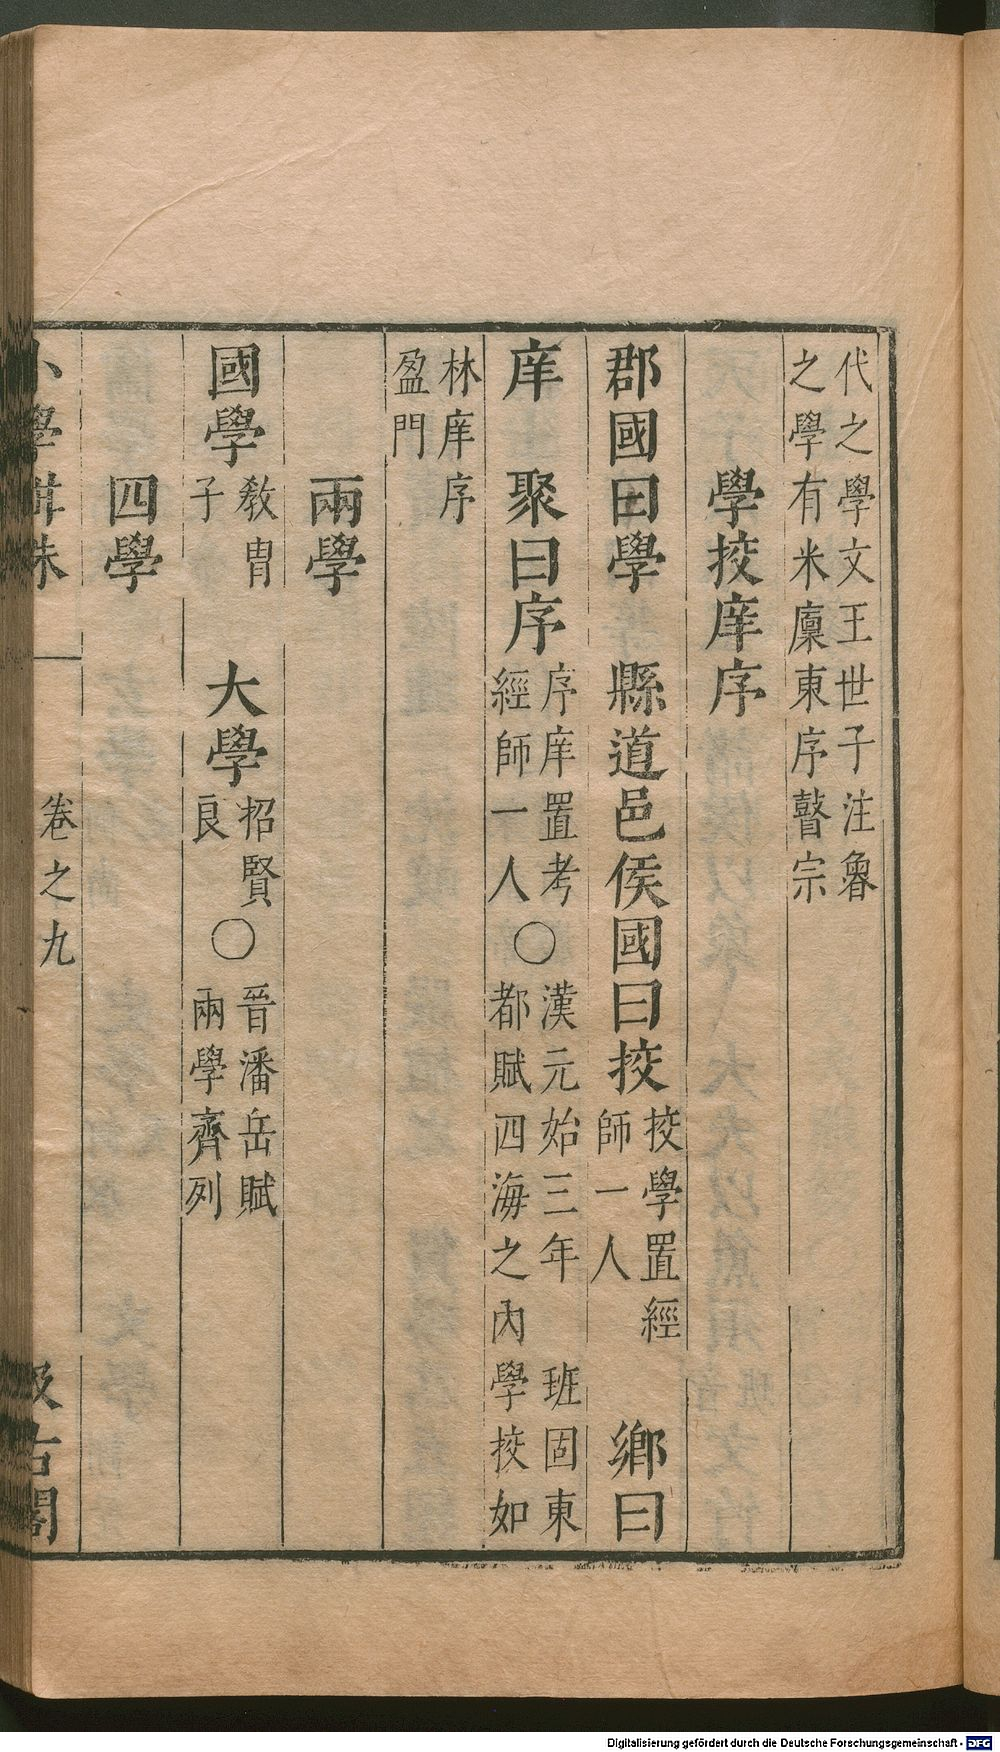 代之學文王世子注魯
之學有米廩東序瞽宗
學挍庠序
郡國曰學 縣道邑侯國曰挍 挍學置經師一人 鄉曰
庠 聚曰序 序庠置考經師一人 〇 漢元始三年 班固東都賦四海之內學挍如
林庠序盈門
兩學
國學 教胄子 大學 招賢良 〇 晉潘岳賦兩學齊列
四學
小學紺珠 卷之九 汲古閣
Digitalisierung gefördert durch die Deutsche Forschungsgemeinschaft - DFG